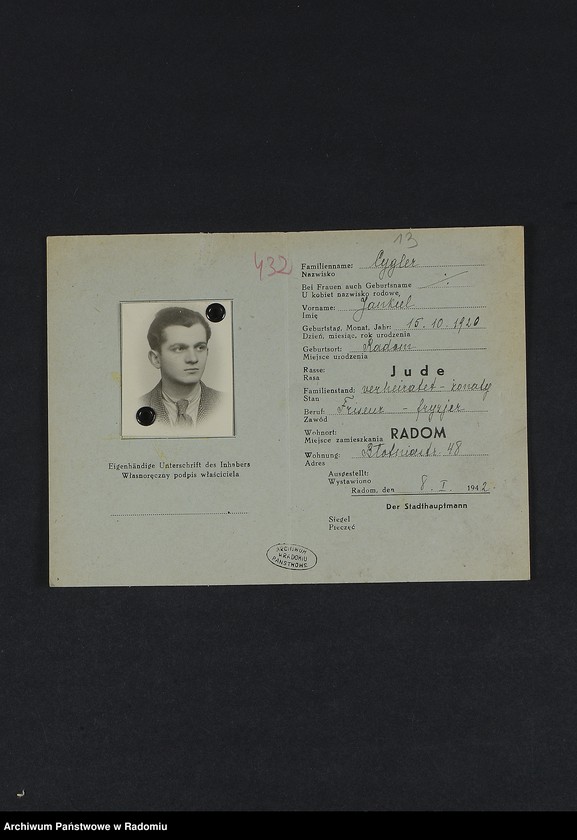 13
432
Familienname: Cygler
Nazwisko
Bei Frauen auch Geburtsname
U kobiet nazwisko rodowe,
Vorname: Jankiel
Imię
Geburtstag, Monat, Jahr: 15. 10. 1920
Dzień, miesiąc, rok urodzenia
Geburtsort: Radom
Miejsce urodzenia
Rasse: Jude
Rasa
Familienstand: verheiratet - żonaty
Stan
Beruf: Friseur - fryzjer
Zawód
Wohnort: RADOM
Miejsce zamieszkania
Wohnung: 48
Adres
Ausgestellt:
Wystawiono
Radom, den 8. I. 1942
Der Stadthauptmann
Siegel
Pieczęć
Eigenhändige Unterschrift des Inhabers
Własnoręczny podpis właściciela
ARCHIWUM
PAŃSTWOWE
W RADOMIU
Archiwum Państwowe w Radomiu